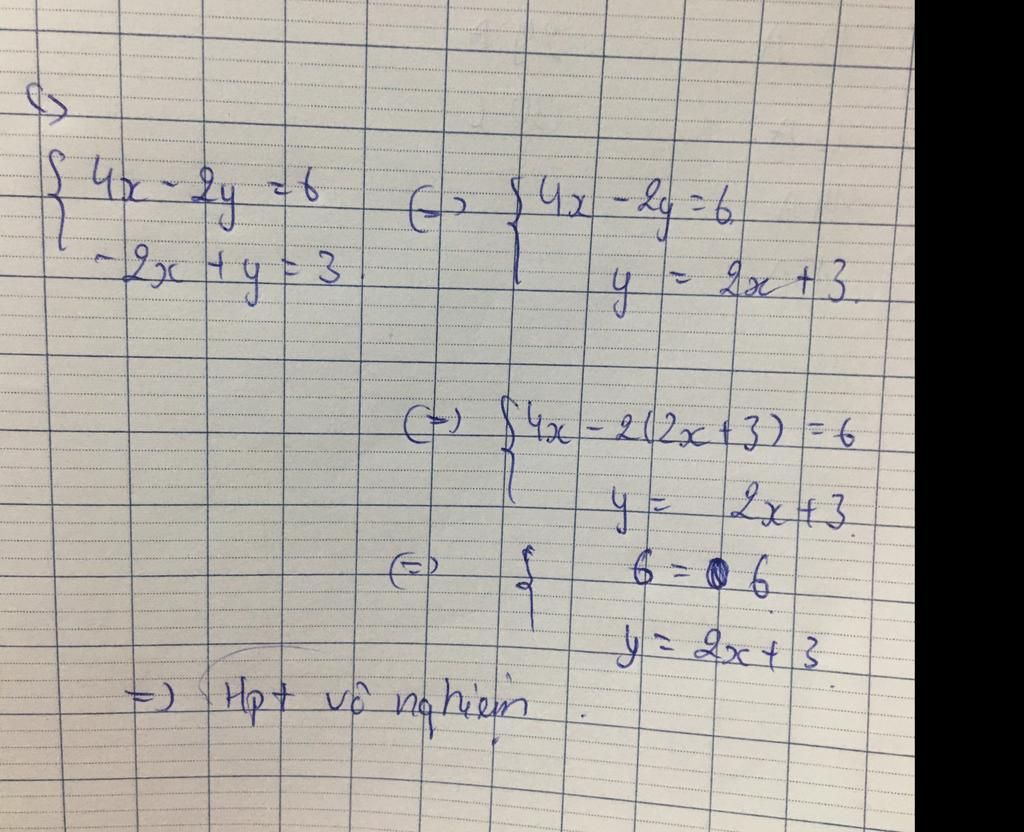 (=)
{ 4x - 2y = 6 (=) { 4x - 2y = 6
- 2x + y = 3 y = 2x + 3.
(=) { 4x - 2(2x + 3) = 6
y = 2x + 3.
(=) { 6 = 6.
y = 2x + 3.
=) Hpt vô nghiệm.